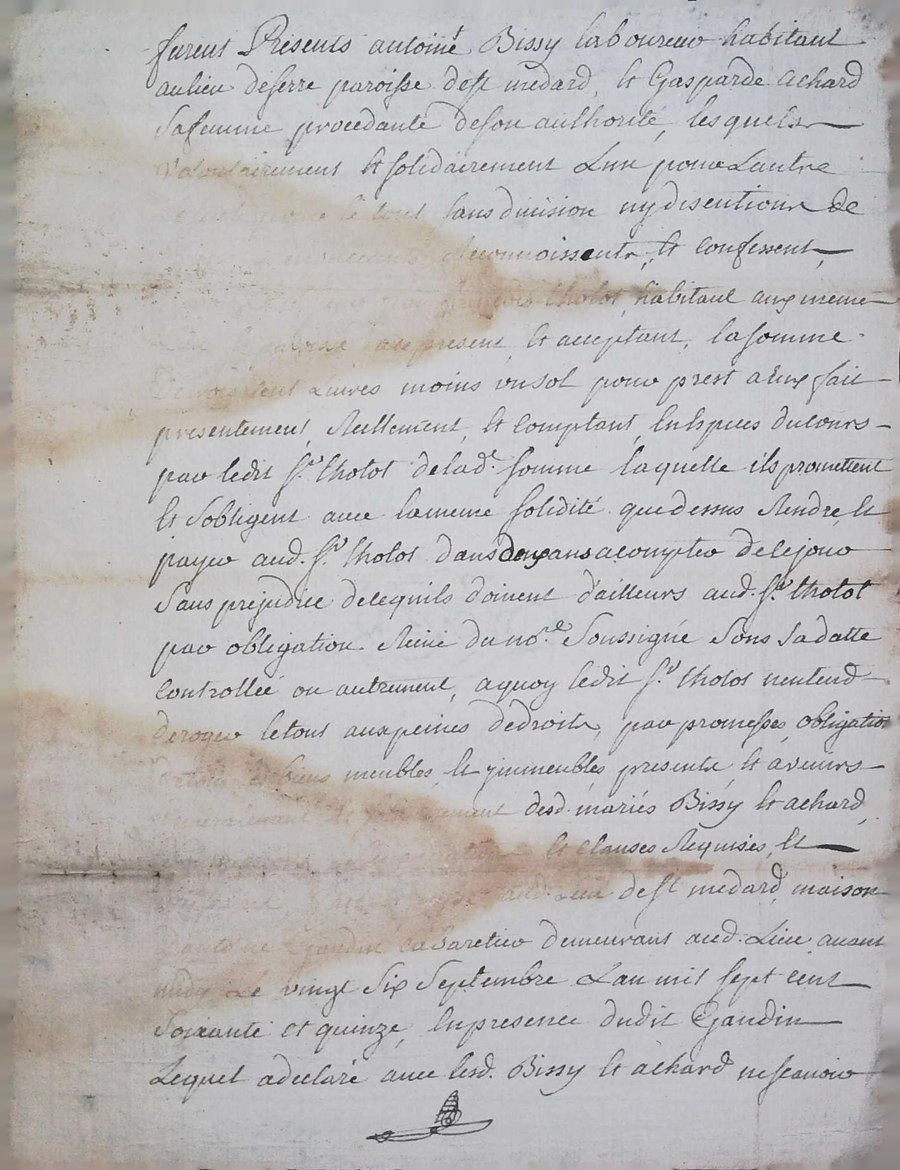 furent Presents antoine Bissy laboureur habitant
au lieu deserre paroisse de st medard, et Gasparde achard
Safemme procedante de son authorité, lesquels
volontairement et solidairement Lun pour Lautre
le tout sans division ny discution de
Reconnoissent, et confessent,
tholot, habitant aux meme
present, et acceptant, la somme
cent Livres moins un sol pour prest a Eux fait
presentement, Reellement, et comptant, En Espices du cours
par ledit sr. tholot de lad. somme laquelle ils promettent
et sobligent avec la meme solidité que dessus Rendre, et
payer aud. sr. tholot dans deux ans a compter de ce jour
Sans prejudice de ce quils doivent d'ailleurs aud. sr. tholot
par obligation Reçue du nore. Soussigné Sous Sa datte
controllée ou autrement, a quoy ledit sr. tholot nentend
deroger le tout aux peines de droit, par promesses, obligation
biens meubles, et jmmeubles, presents, et avenirs
desd. mariés Bissy et achard,
et clauses Requises, et
aud. Lieu de st medard, maison
Gaudin cabaretier demeurant aud. Lieu, avant
midy Le vingt Six Septembre Lan mil sept cent
Soixante et quinze, En presence dudit Gaudin
Lequel a declaré avec lesd. Bissy et achard ne scavoir